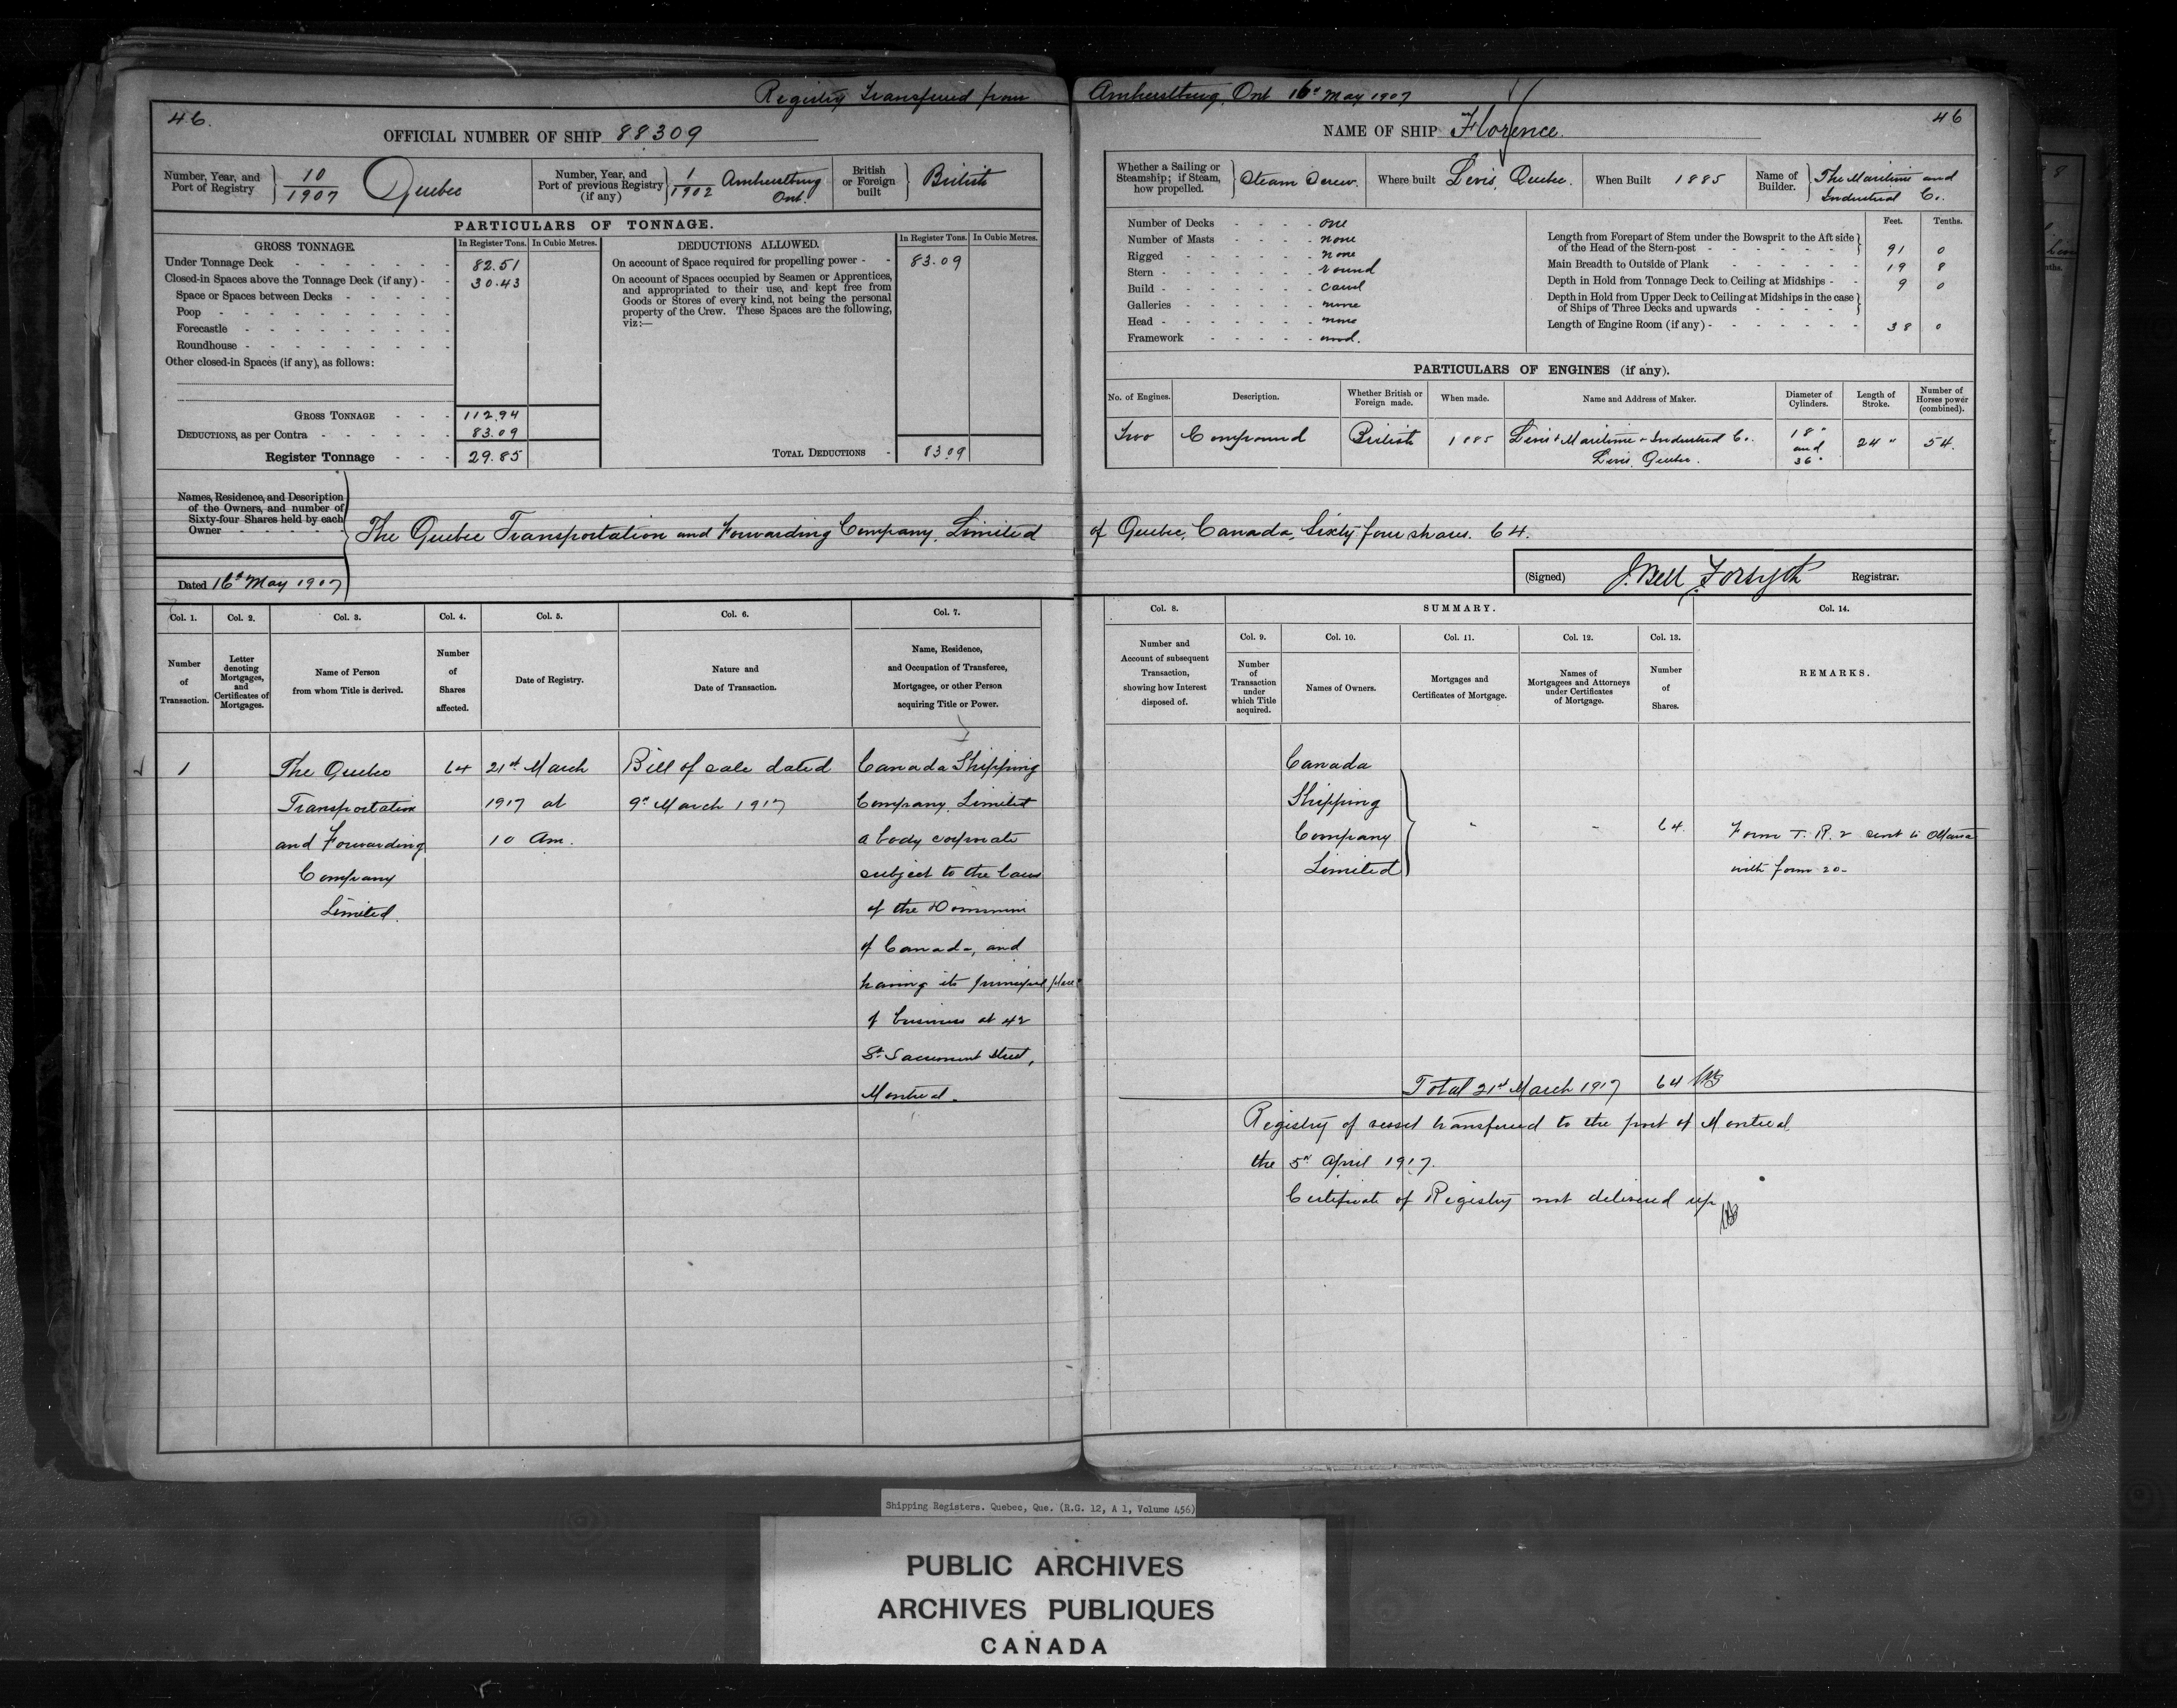 Registry Transferred from Amherstburg, Ont 16th May 1907
46.
OFFICIAL NUMBER OF SHIP 88309
Number, Year, and Port of Registry 10/1907 Quebec
Number, Year, and Port of previous Registry (if any) 1/1902 Amherstburg Ont.
British or Foreign built British
PARTICULARS OF TONNAGE.
GROSS TONNAGE. In Register Tons. In Cubic Metres.
Under Tonnage Deck 82.51
Closed-in Spaces above the Tonnage Deck (if any) 30.43
Space or Spaces between Decks
Poop
Forecastle
Roundhouse
Other closed-in Spaces (if any), as follows:
GROSS TONNAGE 112.94
DEDUCTIONS, as per Contra 83.09
Register Tonnage 29.85
DEDUCTIONS ALLOWED. In Register Tons. In Cubic Metres.
On account of Space required for propelling power 83.09
On account of Spaces occupied by Seamen or Apprentices,
and appropriated to their use, and kept free from
Goods or Stores of every kind, not being the personal
property of the Crew. These Spaces are the following,
viz:—
TOTAL DEDUCTIONS 83.09
NAME OF SHIP Florence.
46
Whether a Sailing or Steamship; if Steam, how propelled. Steam Screw.
Where built Levis, Quebec.
When Built 1885
Name of Builder. The Maritime and Industrial Co.
Number of Decks one
Number of Masts none
Rigged none
Stern round
Build carvel
Galleries none
Head none
Framework wood.
Feet. Tenths.
Length from Forepart of Stem under the Bowsprit to the Aft side
of the Head of the Stern-post 91 0
Main Breadth to Outside of Plank 19 8
Depth in Hold from Tonnage Deck to Ceiling at Midships 9 0
Depth in Hold from Upper Deck to Ceiling at Midships in the case
of Ships of Three Decks and upwards
Length of Engine Room (if any) 38 0
PARTICULARS OF ENGINES (if any).
No. of Engines. Description. Whether British or Foreign made. When made. Name and Address of Maker. Diameter of Cylinders. Length of Stroke. Number of Horses power (combined).
Two Compound British 1885 Levis Maritime & Industrial Co. Levis, Quebec. 18" and 36" 24" 54.
Names, Residence, and Description
of the Owners, and number of
Sixty-four Shares held by each
Owner
The Quebec Transportation and Forwarding Company, Limited of Quebec, Canada, Sixty four shares. 64.
Dated 16th May 1907
(Signed) J. Bell Forsyth Registrar.
Col. 1. Col. 2. Col. 3. Col. 4. Col. 5. Col. 6. Col. 7.
Number of Transaction.
Letter denoting Mortgages, and Certificates of Mortgages.
Name of Person from whom Title is derived.
Number of Shares affected.
Date of Registry.
Nature and Date of Transaction.
Name, Residence, and Occupation of Transferee, Mortgagee, or other Person acquiring Title or Power.
1
The Quebec
Transportation
and Forwarding
Company
Limited.
64
21st March
1917 at
10 Am.
Bill of sale dated
9th March 1917
Canada Shipping
Company, Limited
a body corporate
subject to the laws
of the Dominion
of Canada, and
having its principal place
of business at 42
St. Sacrement Street,
Montreal.
Col. 8. SUMMARY. Col. 14.
Col. 9. Col. 10. Col. 11. Col. 12. Col. 13.
Number and Account of subsequent Transaction, showing how Interest disposed of.
Number of Transaction under which Title acquired.
Names of Owners.
Mortgages and Certificates of Mortgage.
Names of Mortgagees and Attorneys under Certificates of Mortgage.
Number of Shares.
REMARKS.
Canada
Shipping
Company
Limited
64.
Form T. R. 2 sent to Ottawa
with form 20-
Total 21st March 1917 64
Registry of vessel transferred to the port of Montreal
the 5th April 1917.
Certificate of Registry not delivered up
Shipping Registers. Quebec, Que. (R.G. 12, A 1, Volume 456)
PUBLIC ARCHIVES
ARCHIVES PUBLIQUES
CANADA